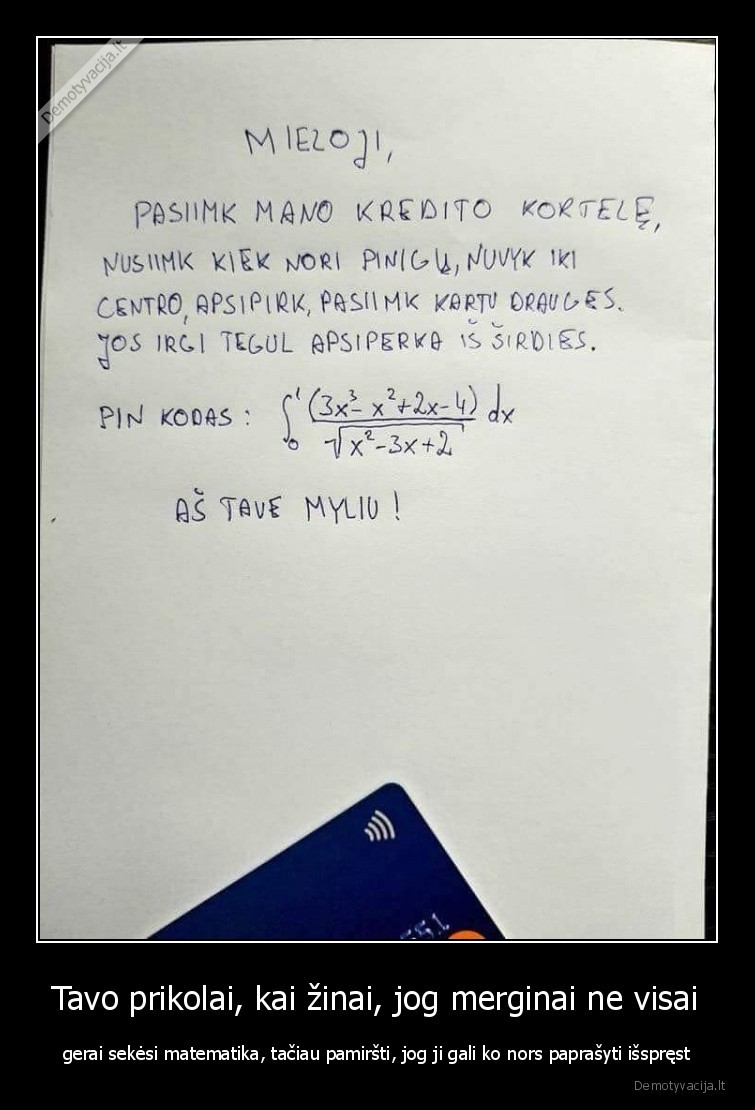 Demotyvacija.lt
MIELOJI,
PASIIMK MANO KREDITO KORTELĘ,
NUSIIMK KIEK NORI PINIGŲ, NUVYK IKI
CENTRO, APSIPIRK, PASIIMK KARTU DRAUGES.
JOS IRGI TEGUL APSIPERKA IŠ ŠIRDIES.
PIN KODAS: ∫₀¹ (3x³-x²+2x-4)/√(x²-3x+2) dx
AŠ TAVE MYLIU!
551
Tavo prikolai, kai žinai, jog merginai ne visai
gerai sekėsi matematika, tačiau pamiršti, jog ji gali ko nors paprašyti išspręst
Demotyvacija.lt